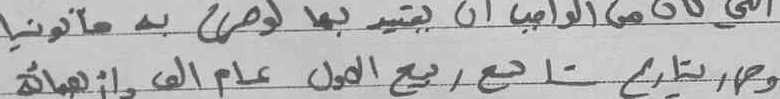 التي كان من الواجب ان يتقيد بها لوصرح به قانونيا
وحرر بتاريخ تاسع ربيع الاول عام الف واربعمائة